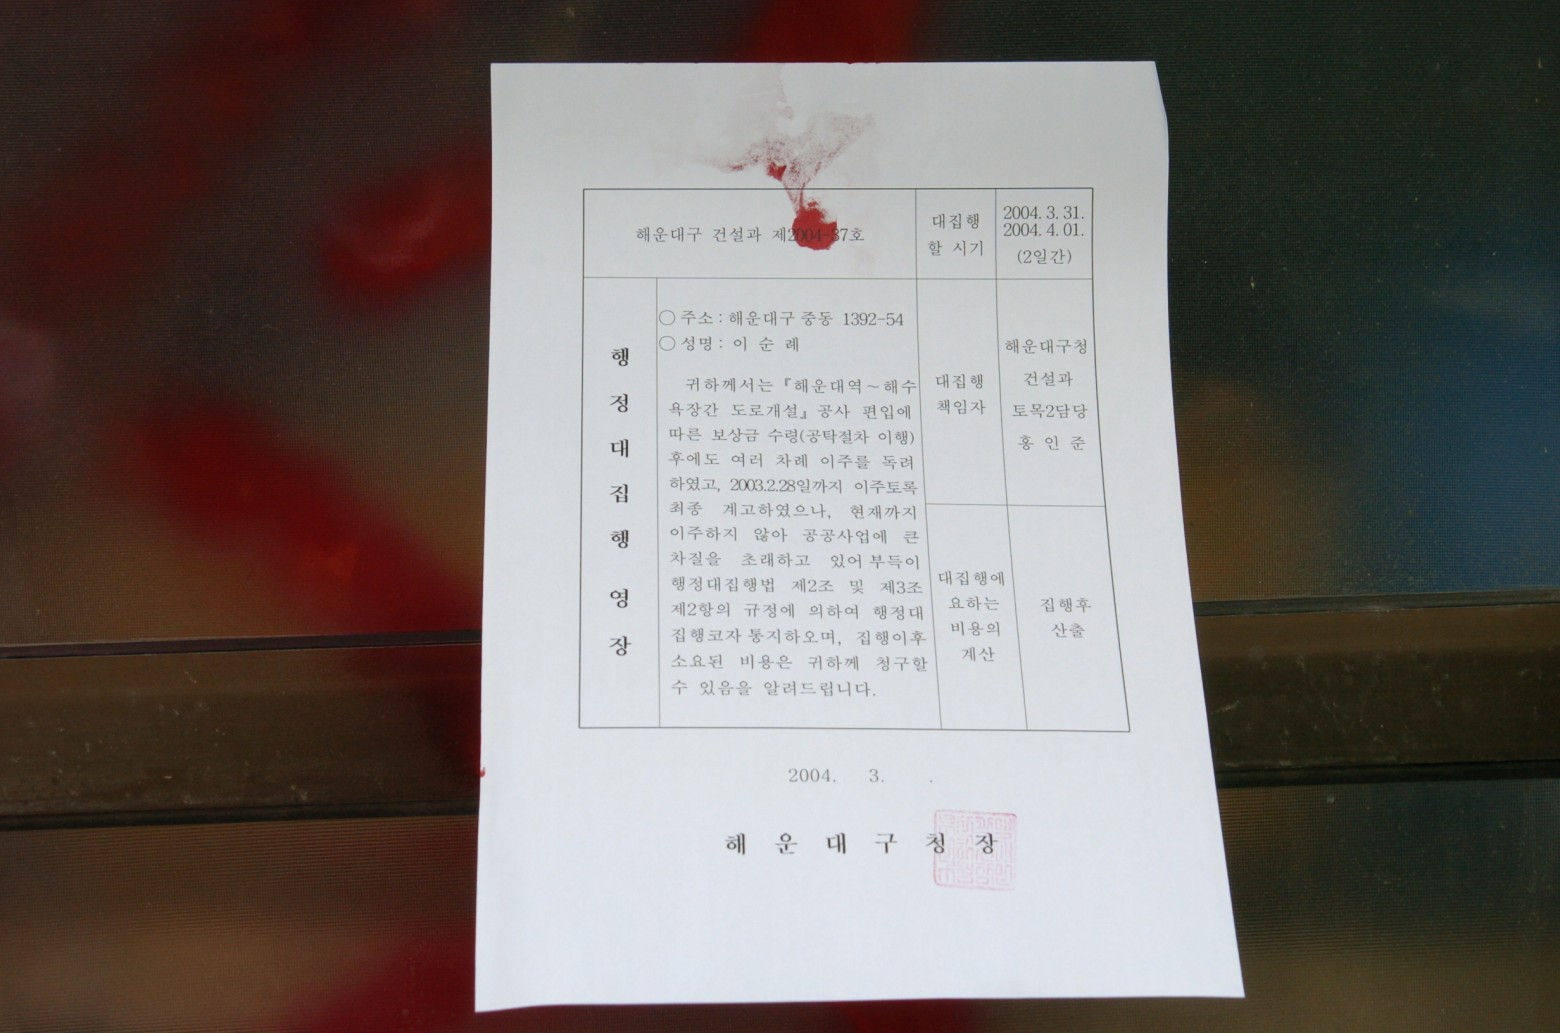 해운대구 건설과 제2004-37호
대집행
할 시기
2004. 3. 31.
2004. 4. 01.
(2일간)
행정대집행영장
○ 주소 : 해운대구 중동 1392-54
○ 성명 : 이 순 례
귀하께서는 『해운대역~해수
욕장간 도로개설』공사 편입에
따른 보상금 수령(공탁절차 이행)
후에도 여러 차례 이주를 독려
하였고, 2003.2.28일까지 이주토록
최종 계고하였으나, 현재까지
이주하지 않아 공공사업에 큰
차질을 초래하고 있어 부득이
행정대집행법 제2조 및 제3조
제2항의 규정에 의하여 행정대
집행코자 통지하오며, 집행이후
소요된 비용은 귀하께 청구할
수 있음을 알려드립니다.
대집행
책임자
해운대구청
건설과
토목2담당
홍 인 준
대집행에
요하는
비용의
계산
집행후
산출
2004. 3. .
해 운 대 구 청 장